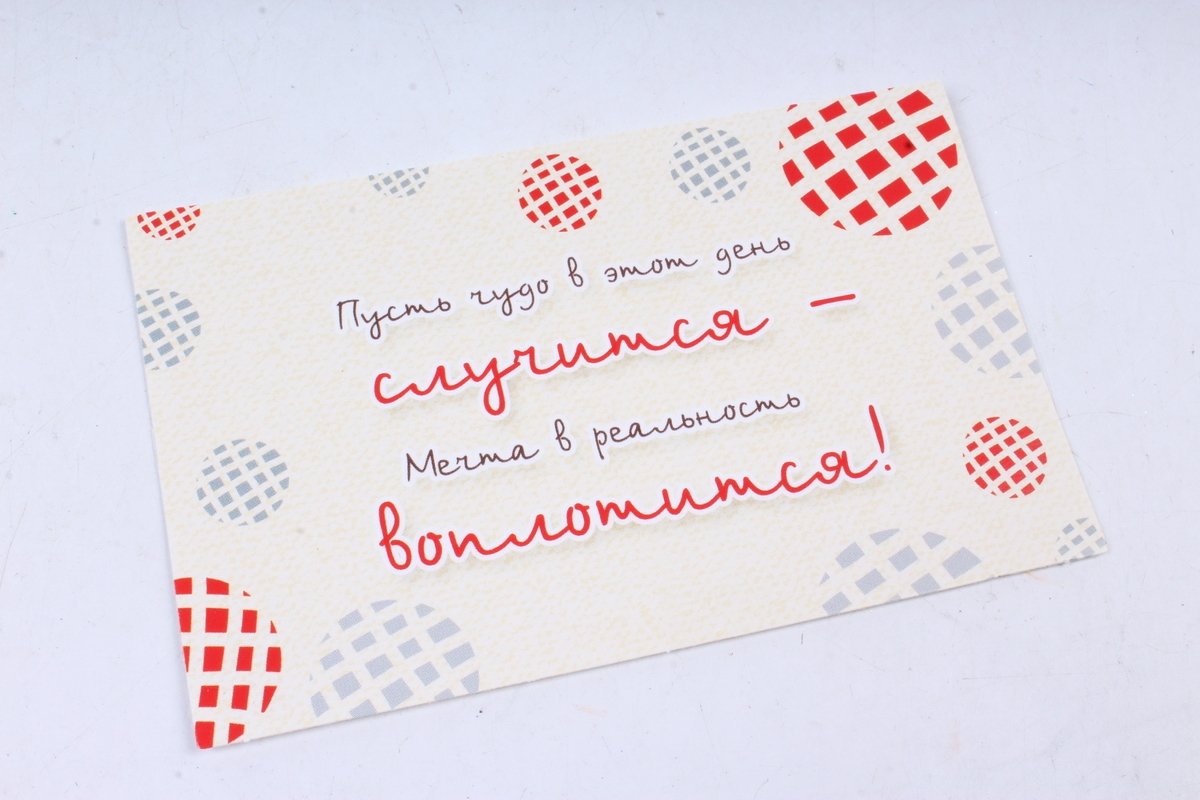 Пусть чудо в этот день
случится –
Мечта в реальность
воплотится!